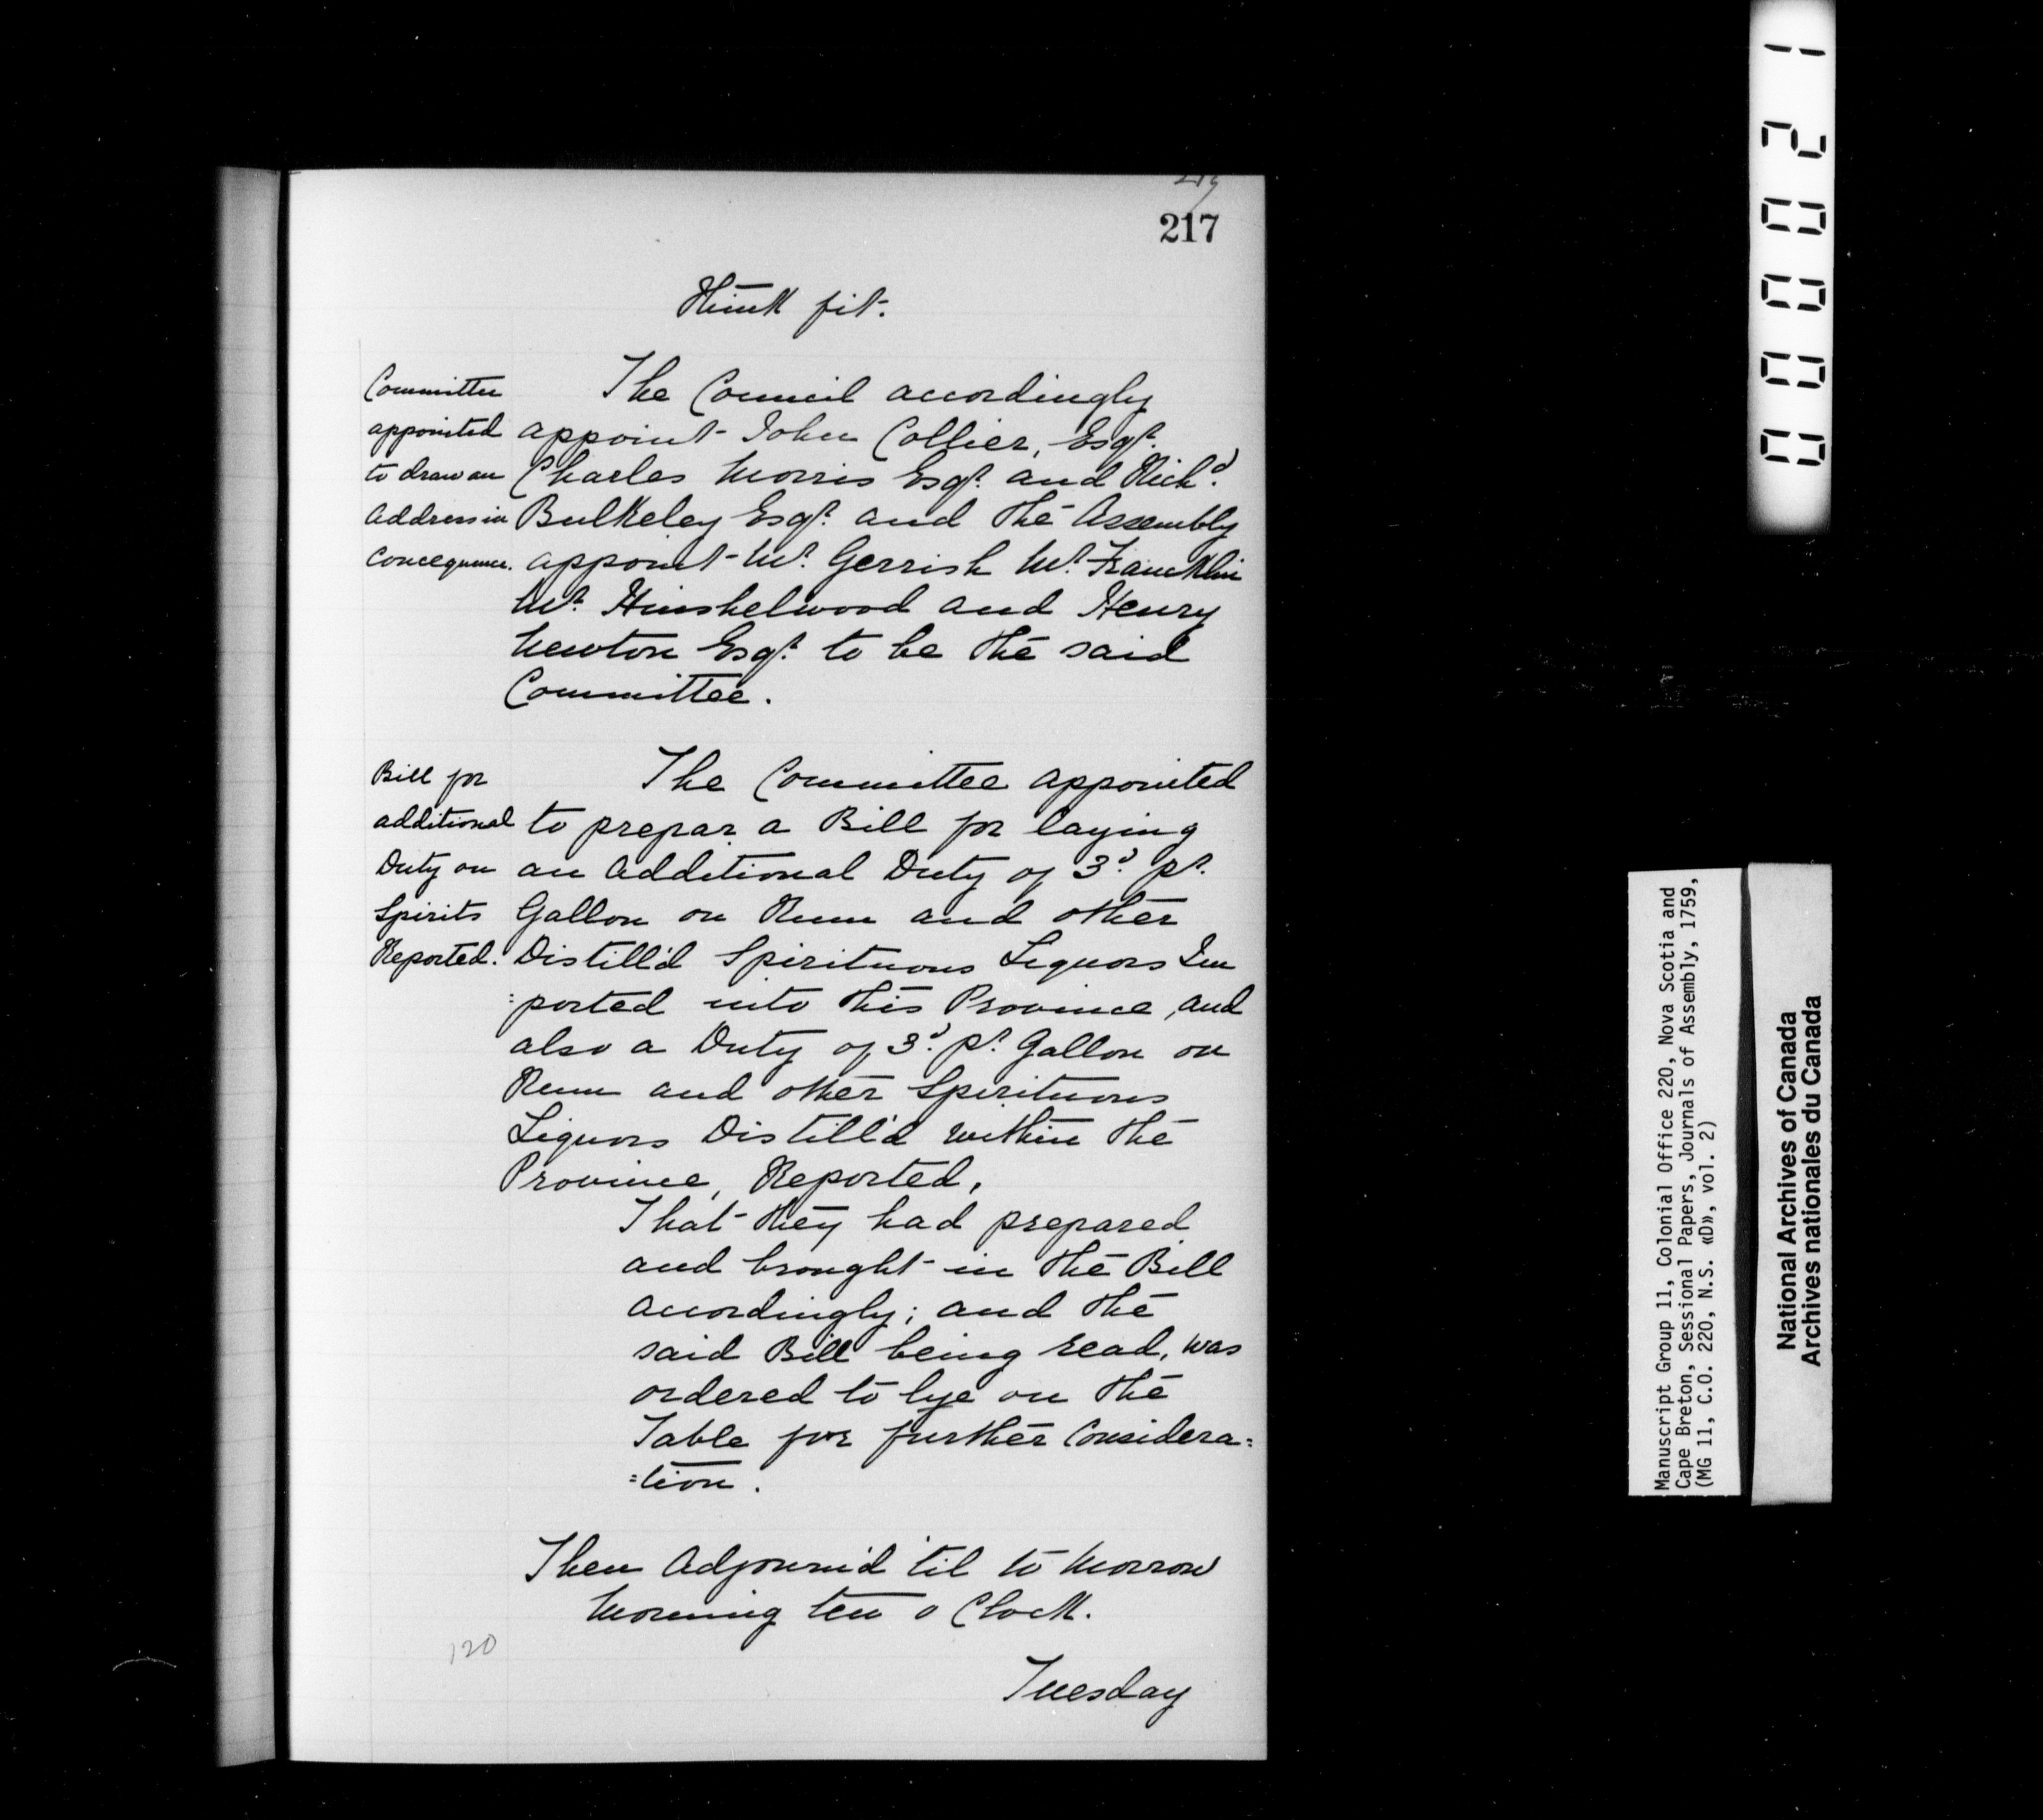 217
think fit.
Committee
appointed
to draw an
Address in
Concequence.
The Council accordingly
appoint John Collier, Esqr.
Charles Morris Esqr. and Richd.
Bulkeley Esqr. and the Assembly
appoint Mr. Gerrish Mr. Francklin
Mr. Hinshelwood and Henry
Newton Esqr. to be the said
Committee.
Bill for
additional
Duty on
Spirits
Reported.
The Committee appointed
to prepar a Bill for laying
an additional Duty of 3d. pr.
Gallon on Rum and other
Distill'd Spirituous Liquors Im
=ported into this Province, and
also a Duty of 3d. pr. Gallon on
Rum and other Spirituous
Liquors Distill'd within the
Province, Reported,
That they had prepared
and brought in the Bill
accordingly; and the
said Bill being read, was
ordered to lye on the
Table for further Considera=
=tion.
Then Adjourn'd 'til to Morrow
Morning ten o Clock.
120
Tuesday
00002 1
Manuscript Group 11, Colonial Office 220, Nova Scotia and
Cape Breton, Sessional Papers, Journals of Assembly, 1759,
(MG 11, C.O. 220, N.S. «D», vol. 2)
National Archives of Canada
Archives nationales du Canada